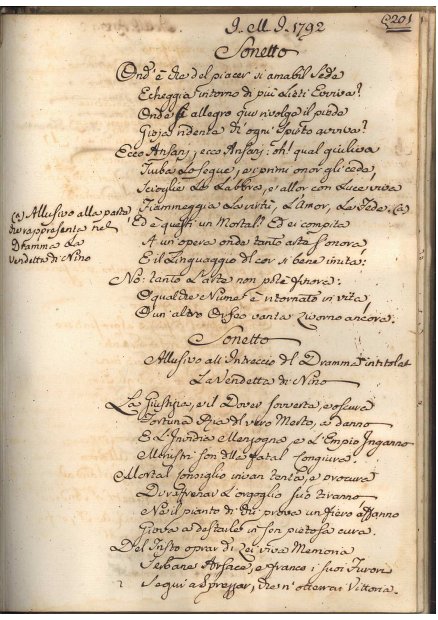 J. M. J. 1792
201
Sonetto
Ond'è che del piacer sì amabil Sede
Echeggia intorno di più lieti Evviva?
Onde sì allegro qui rivolge il piede
Gioja ridente di ogni Spirto avviva?
Ecco Ansanj; ecco Ansanj: oh! qual giuliva
Turba lo segue, e i primi onor gli cede,
Scioglie le labbra, e allor con luce viva
Fiammeggia la virtù, l'Amor, la Fede. (a)
(a) Allusivo alla parte
che rappresenta nel
Dramma la
Vendetta di Nino
Ed è questi un Mortal? Ed ei compita
A un'opera onde tanto arte sonora
E il linguaggio del cor sì bene imita:
Nò: tanto l'arte non potè finora:
O qualche Nume è ritornato in vita,
O un'altro Orfeo vanta Livorno ancora.
Sonetto
Allusivo all'Intreccio del Dramma intitolat
La Vendetta di Nino
La Giustizia, e il Dover sovverte, e oscura
Fortuna Rea del vero Merto, a danno
E l'Invidia e Menzogna, e l'Empio Inganno
Ministri son della fatal congiura.
Mortal consiglio invan tenta, e procura
Di raffrenar l'orgoglio suo tiranno
Ne il pianto di chi prova un fiero affanno
Giova a destarle in sen pietosa cura.
Del Giusto oprar di Lei viva Memoria
Serbane Arsace, e franco i suoi Furori
Segui a sprezzar, che n'otterrai Vittoria.